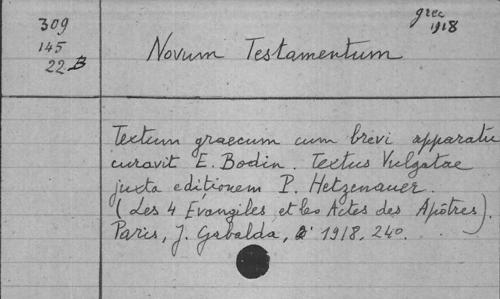 309
145
22 B
grec
1918
Novum Testamentum
Textum graecum cum brevi apparatu
curavit E. Bodin. Textus Vulgatae
juxta editionem P. Hetzenauer.
(Les 4 Evangiles et les Actes des Apôtres).
Paris, J. Gabalda, 1918. 24o.